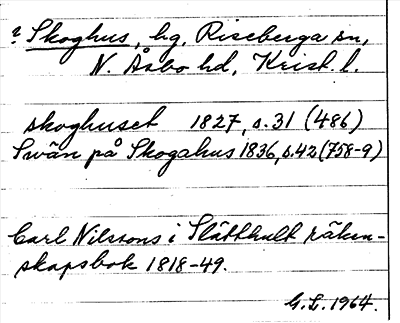 ? Skoghus, hg, Riseberga sn,
N. Åsbo hd, Krist. l.
skoghuset 1827, s.31 (486)
Swän på Skogahus 1836, s.42 (758-9)
Carl Nilssons i Slätthult räken-
skapsbok 1818-49.
G.L. 1964.